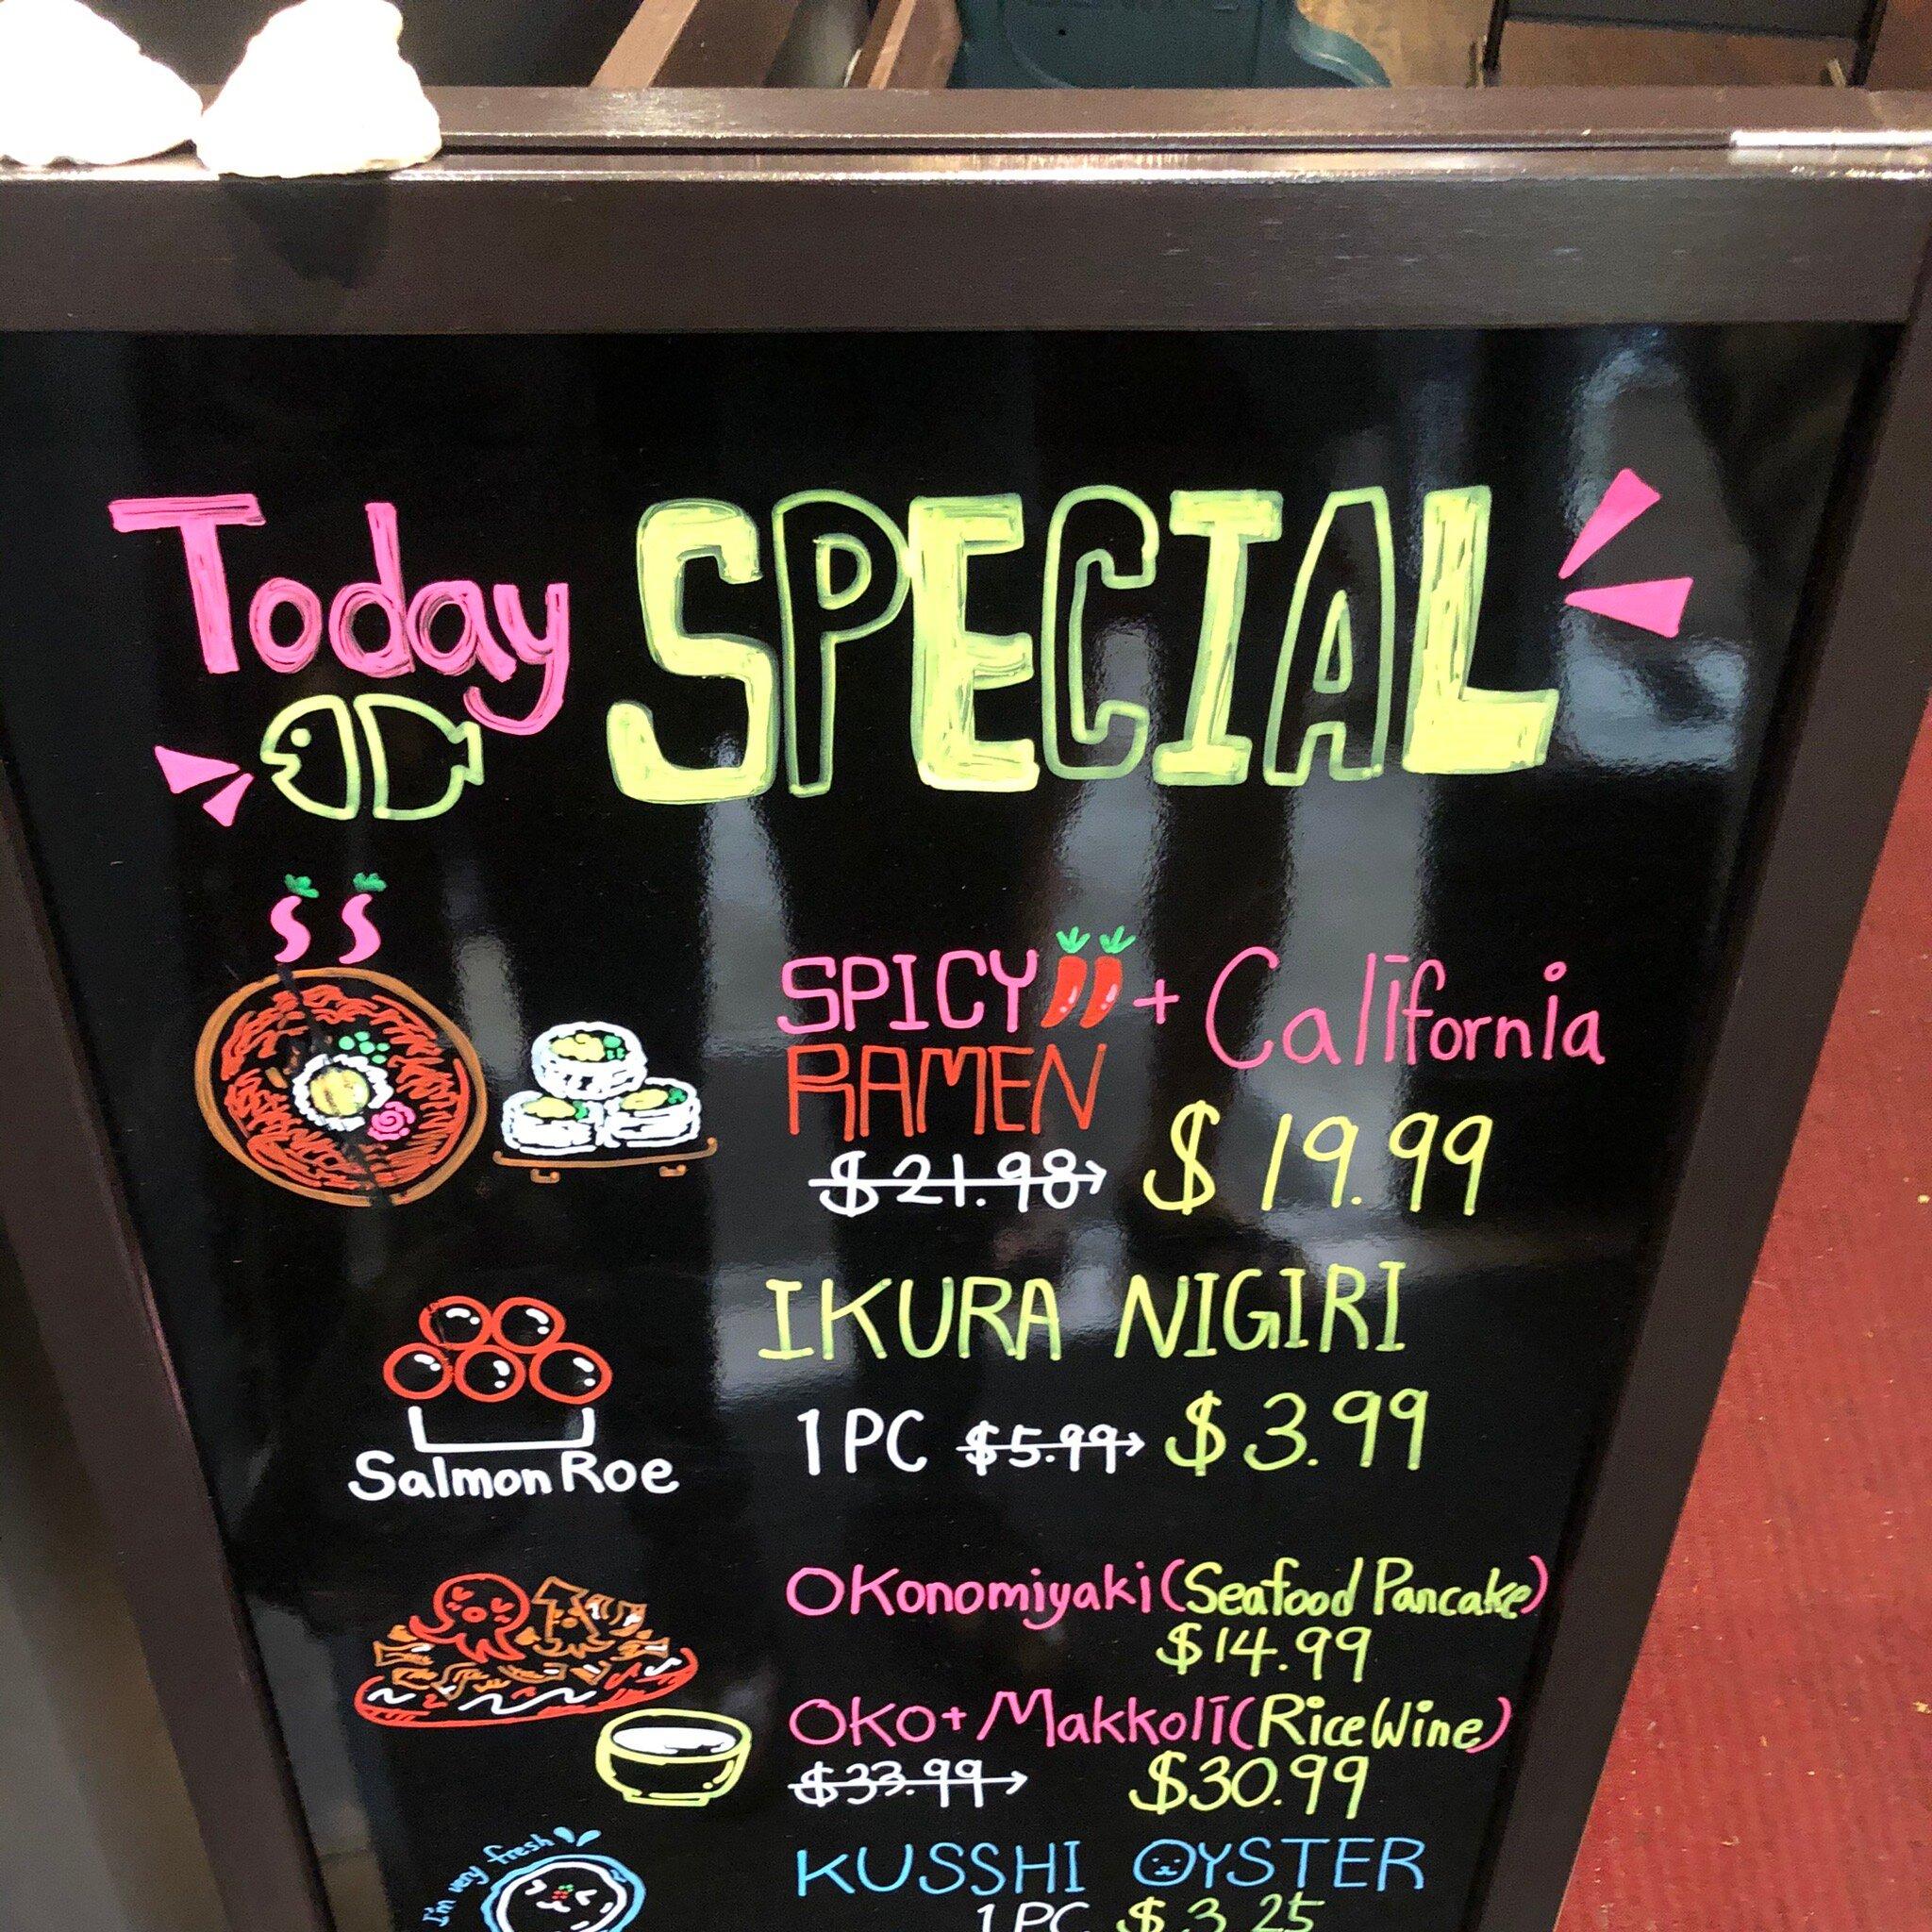 Today SPECIAL
SPICY + California
RAMEN
$21.98 $19.99
IKURA NIGIRI
1PC $5.99 $3.99
Salmon Roe
Okonomiyaki (Seafood Pancake)
$14.99
Oko + Makkoli (Rice Wine)
$33.99 $30.99
I'm very fresh
KUSSHI OYSTER
1PC $3.25